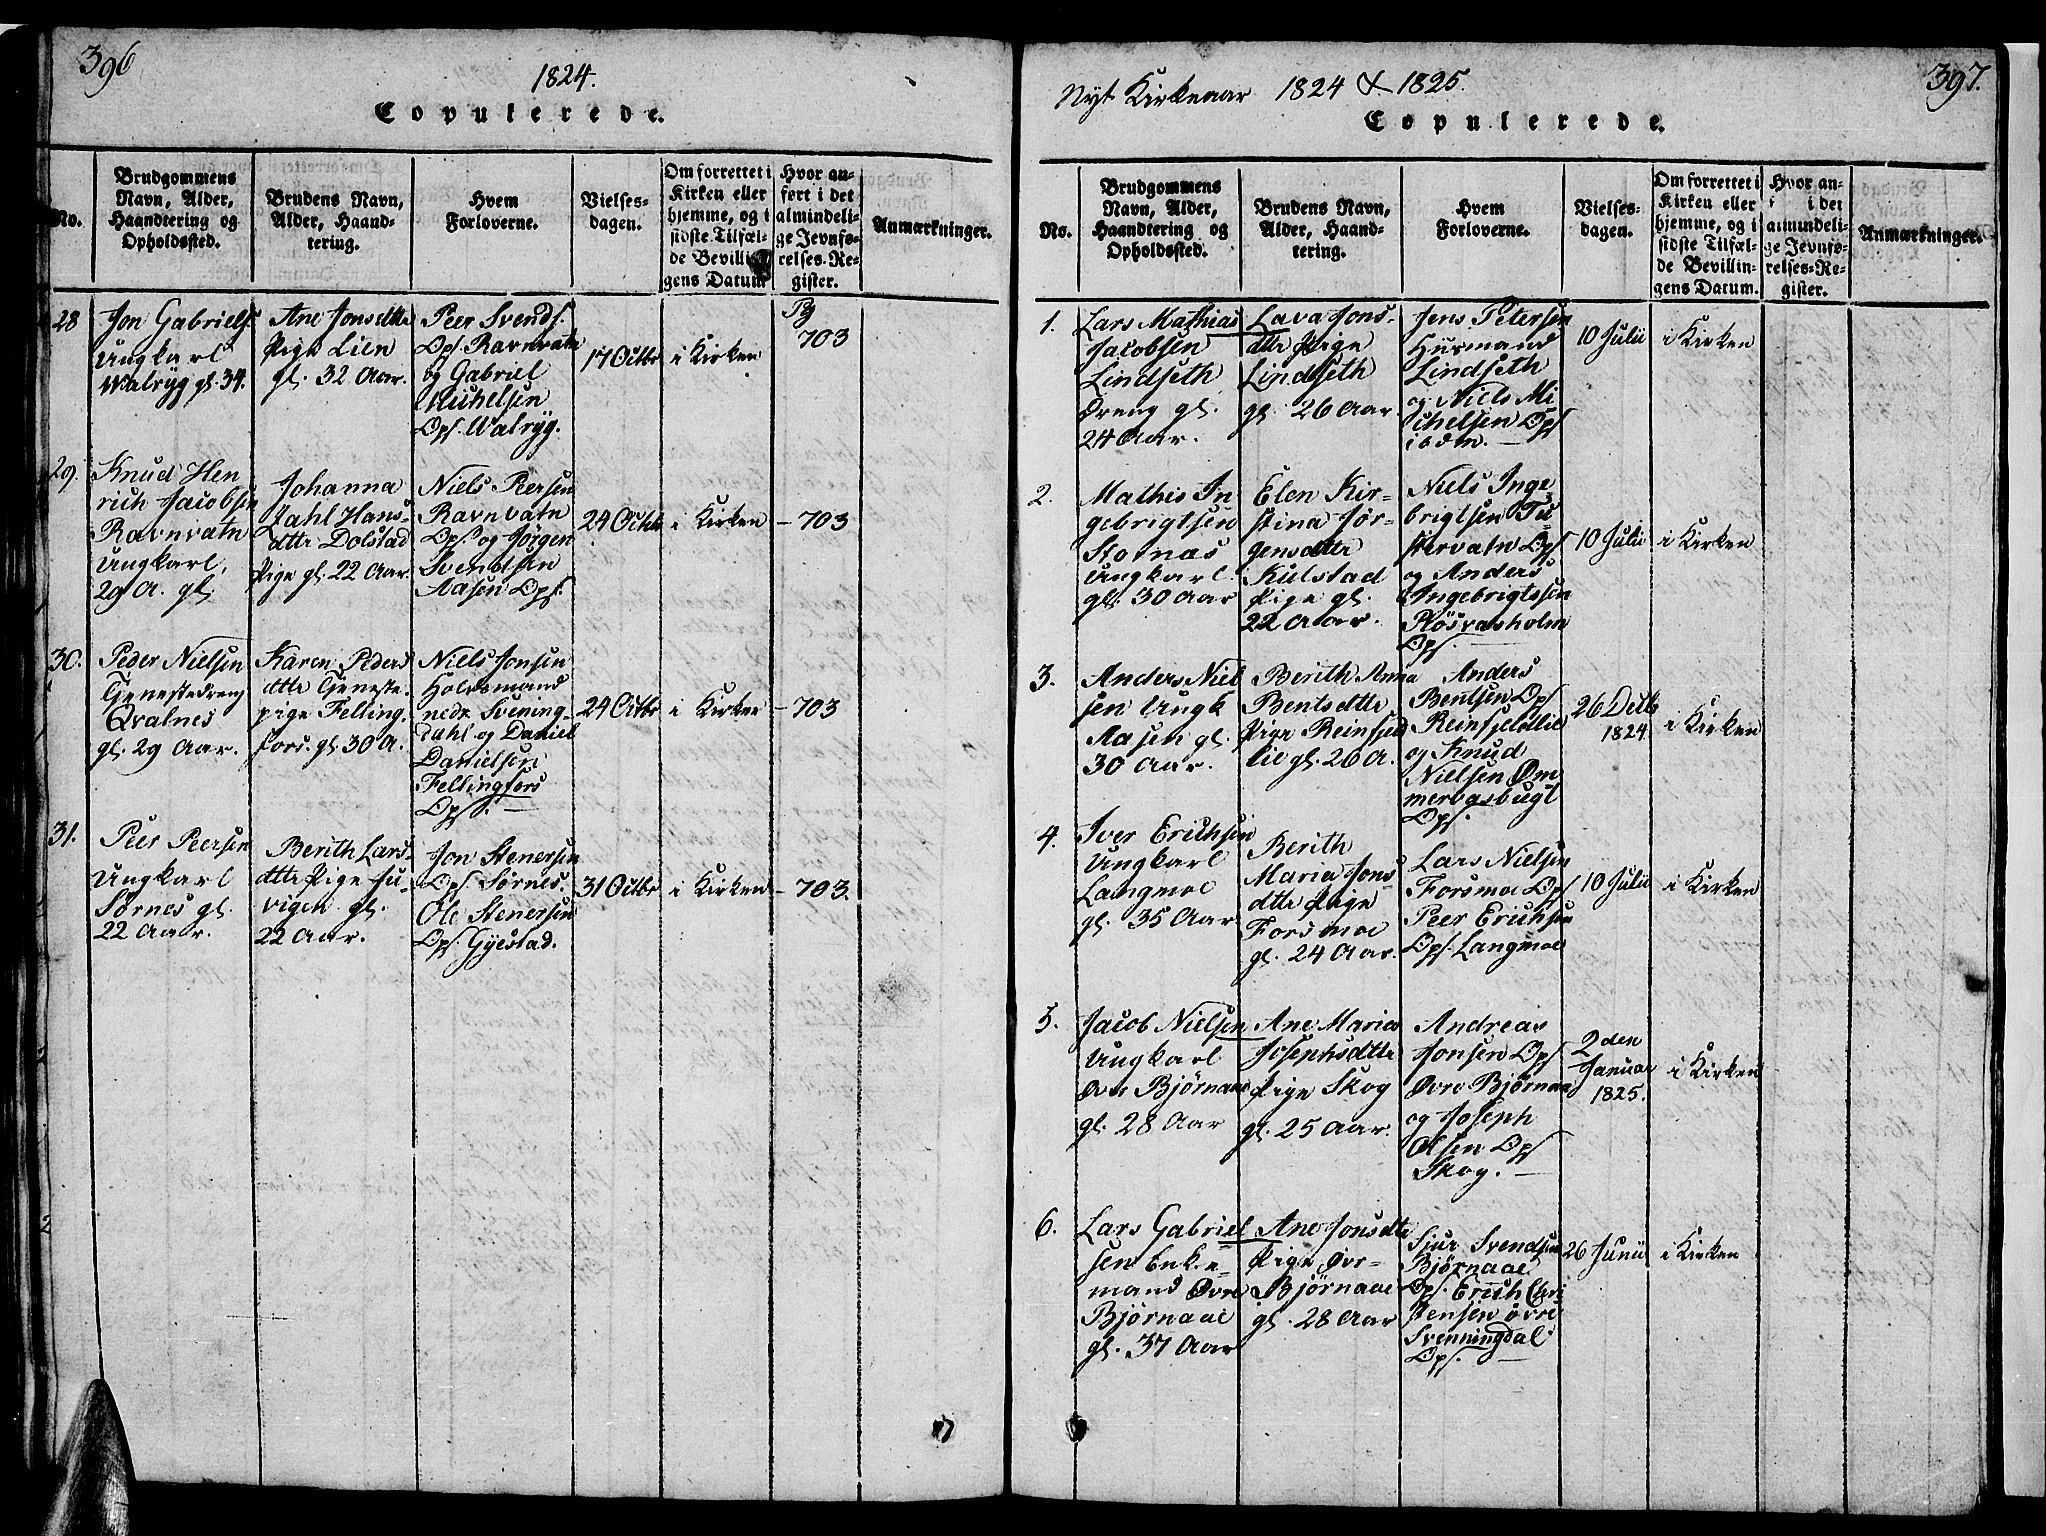 396
1824.
Copulerede.
No.
Brudgommens
Navn, Alder,
Haandtering og
Opholdssted.
Brudens Navn,
Alder, Haand-
tering.
Hvem
Forloverne.
Vielses-
dagen.
Om forrettet i
Kirken eller
hjemme, og i
sidste Tilfæl-
de Bevillin-
gens Datum
Hvor an-
ført i det
almindeli-
ge Jevnfø-
relses-Re-
gister.
Anmærkninger.
28
Jon Gabriels.
Ungkarl
Walryg gl. 34.
Ane Jonsdttr
Pige Lien
gl. 32 Aar.
Peer Svends.
Ops. Ravnvatn
og Gabriel
Michelsen
Ops. Walryg.
17 Octbr
i Kirken
Pg
703
29.
Knud Hen
rich Jacobsen
Ravnvatn
Ungkarl,
29 A. gl.
Johanna
Dahl Hans-
dttr Dolstad
Pige gl. 22 Aar.
Niels Peersen
Ravnvatn
Ops og Jørgen
Svendsen
Aasen Ops.
24 Octbr
i Kirken
- 703
30.
Peder Nielsen
Tjenestedreng
Qvalnes
gl. 29 Aar.
Karen Peders
dttr Tjeneste-
pige Felling-
fors. gl. 30 A.
Niels Jonsen
Holdsmand
nedr Svening-
dahl og Daniel
Danielsen
Fellingfors
Ops.
24 Octbr
i Kirken
- 703
31.
Peer Peersen
Ungkarl
Sørnes gl.
22 Aar.
Berith Lars-
dttr Pige Ju-
vigen gl.
22 Aar.
Jon Stenersen
Ops. Sørnes.
Ole Stenersen
Ops. Gyestad.
31 Octbr
i Kirken
- 703.
397.
Nyt Kirkeaar 1824 & 1825.
Copulerede.
No.
Brudgommens
Navn, Alder,
Haandtering og
Opholdssted.
Brudens Navn,
Alder, Haand-
tering.
Hvem
Forloverne.
Vielses-
dagen.
Om forrettet i
Kirken eller
hjemme, og i
sidste Tilfæl-
de Bevillin-
gens Datum.
Hvor an-
i det
almindeli-
ge Jevnfø-
relses-Re-
gister.
Anmærkninger.
1.
Lars Mathias
Jacobsen
Lindseth
Dreng gl.
24 Aar.
Lava Jons-
dttr Pige
Lindseth
gl. 26 Aar.
Jens Petersen
Husmand
Lindseth
og Niels Mi
chelsen Ops
ibdm.
10 Julii
i Kirken
2.
Mathis In
gebrigtsen
Stornæs
Ungkarl
gl. 30 Aar
Elen Kir-
stina Jør-
gensdttr
Kulstad
Pige gl.
22 Aar.
Niels Inge
brigtsen Tu
stervatn Ops
og Anders
Ingebrigtssen
Røsvasholm
Ops.
10 Julii
i Kirken
3.
Anders Niel
sen Ungk
Aasen gl.
30 Aar.
Berith Anna
Bentsdttr
Pige Reinfjeld
lie gl. 26 A.
Anders
Bentsen Ops
Reinfjeldlie
og Knud
Nielsen Øm
merbasbugt
Ops.
26 Decbr
1824.
i Kirken
4.
Iver Erichsen
Ungkarl
Langmoe
gl. 35 Aar
Berith
Maria Jons
dttr Pige
Forsmoe
gl. 24 Aar.
Lars Nielsen
Forsmoe Ops
Peer Erichsen
Ops. Langmoe
10 Julii
i Kirken
5.
Jacob Nielsen
Ungkarl
Øvre Bjørnaae
gl. 28 Aar
Ane Maria
Josephsdttr
Pige Skog
gl. 25 Aar.
Andreas
Jonsen Ops
Øvre Bjørnaa
og Joseph
Olsen Ops
Skog.
2den
Januar
1825.
i Kirken
6.
Lars Gabriel
sen Enke-
mand Øvre
Bjørnaae
gl. 37 Aar
Ane Jonsdtr
Pige Øvr-
Bjørnaae
gl. 28 Aar
Sjur Svendsen
Bjørnaae
Ops. Erich Chri
stensen øvre
Svenningdal
Ops.
26 Junii
i Kirken